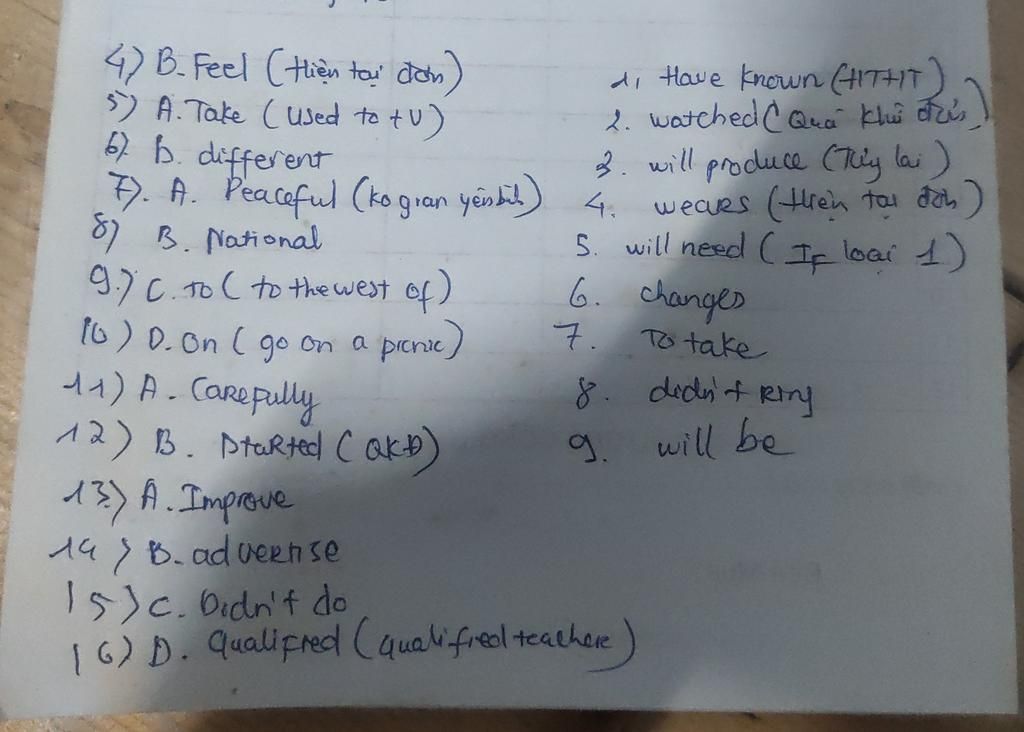 4) B. Feel (Hiện tại đơn)
5) A. Take (Used to + V)
6) D. different
7). A. Peaceful (ko gian yên bình)
8) B. National
9.) C. to (to the west of)
10) D. On (go on a picnic)
11) A. Carefully
12) B. Started (QKĐ)
13) A. Improve
14) B. advertise
15) C. Didn't do
16) D. Qualified (qualified teachers)
1, Have known (HTHT)
2. watched (Quá khứ đơn)
3. will produce (Tương lai)
4. wears (Hiện tại đơn)
5. will need (If loại 1)
6. changes
7. To take
8. didn't ring
9. will be